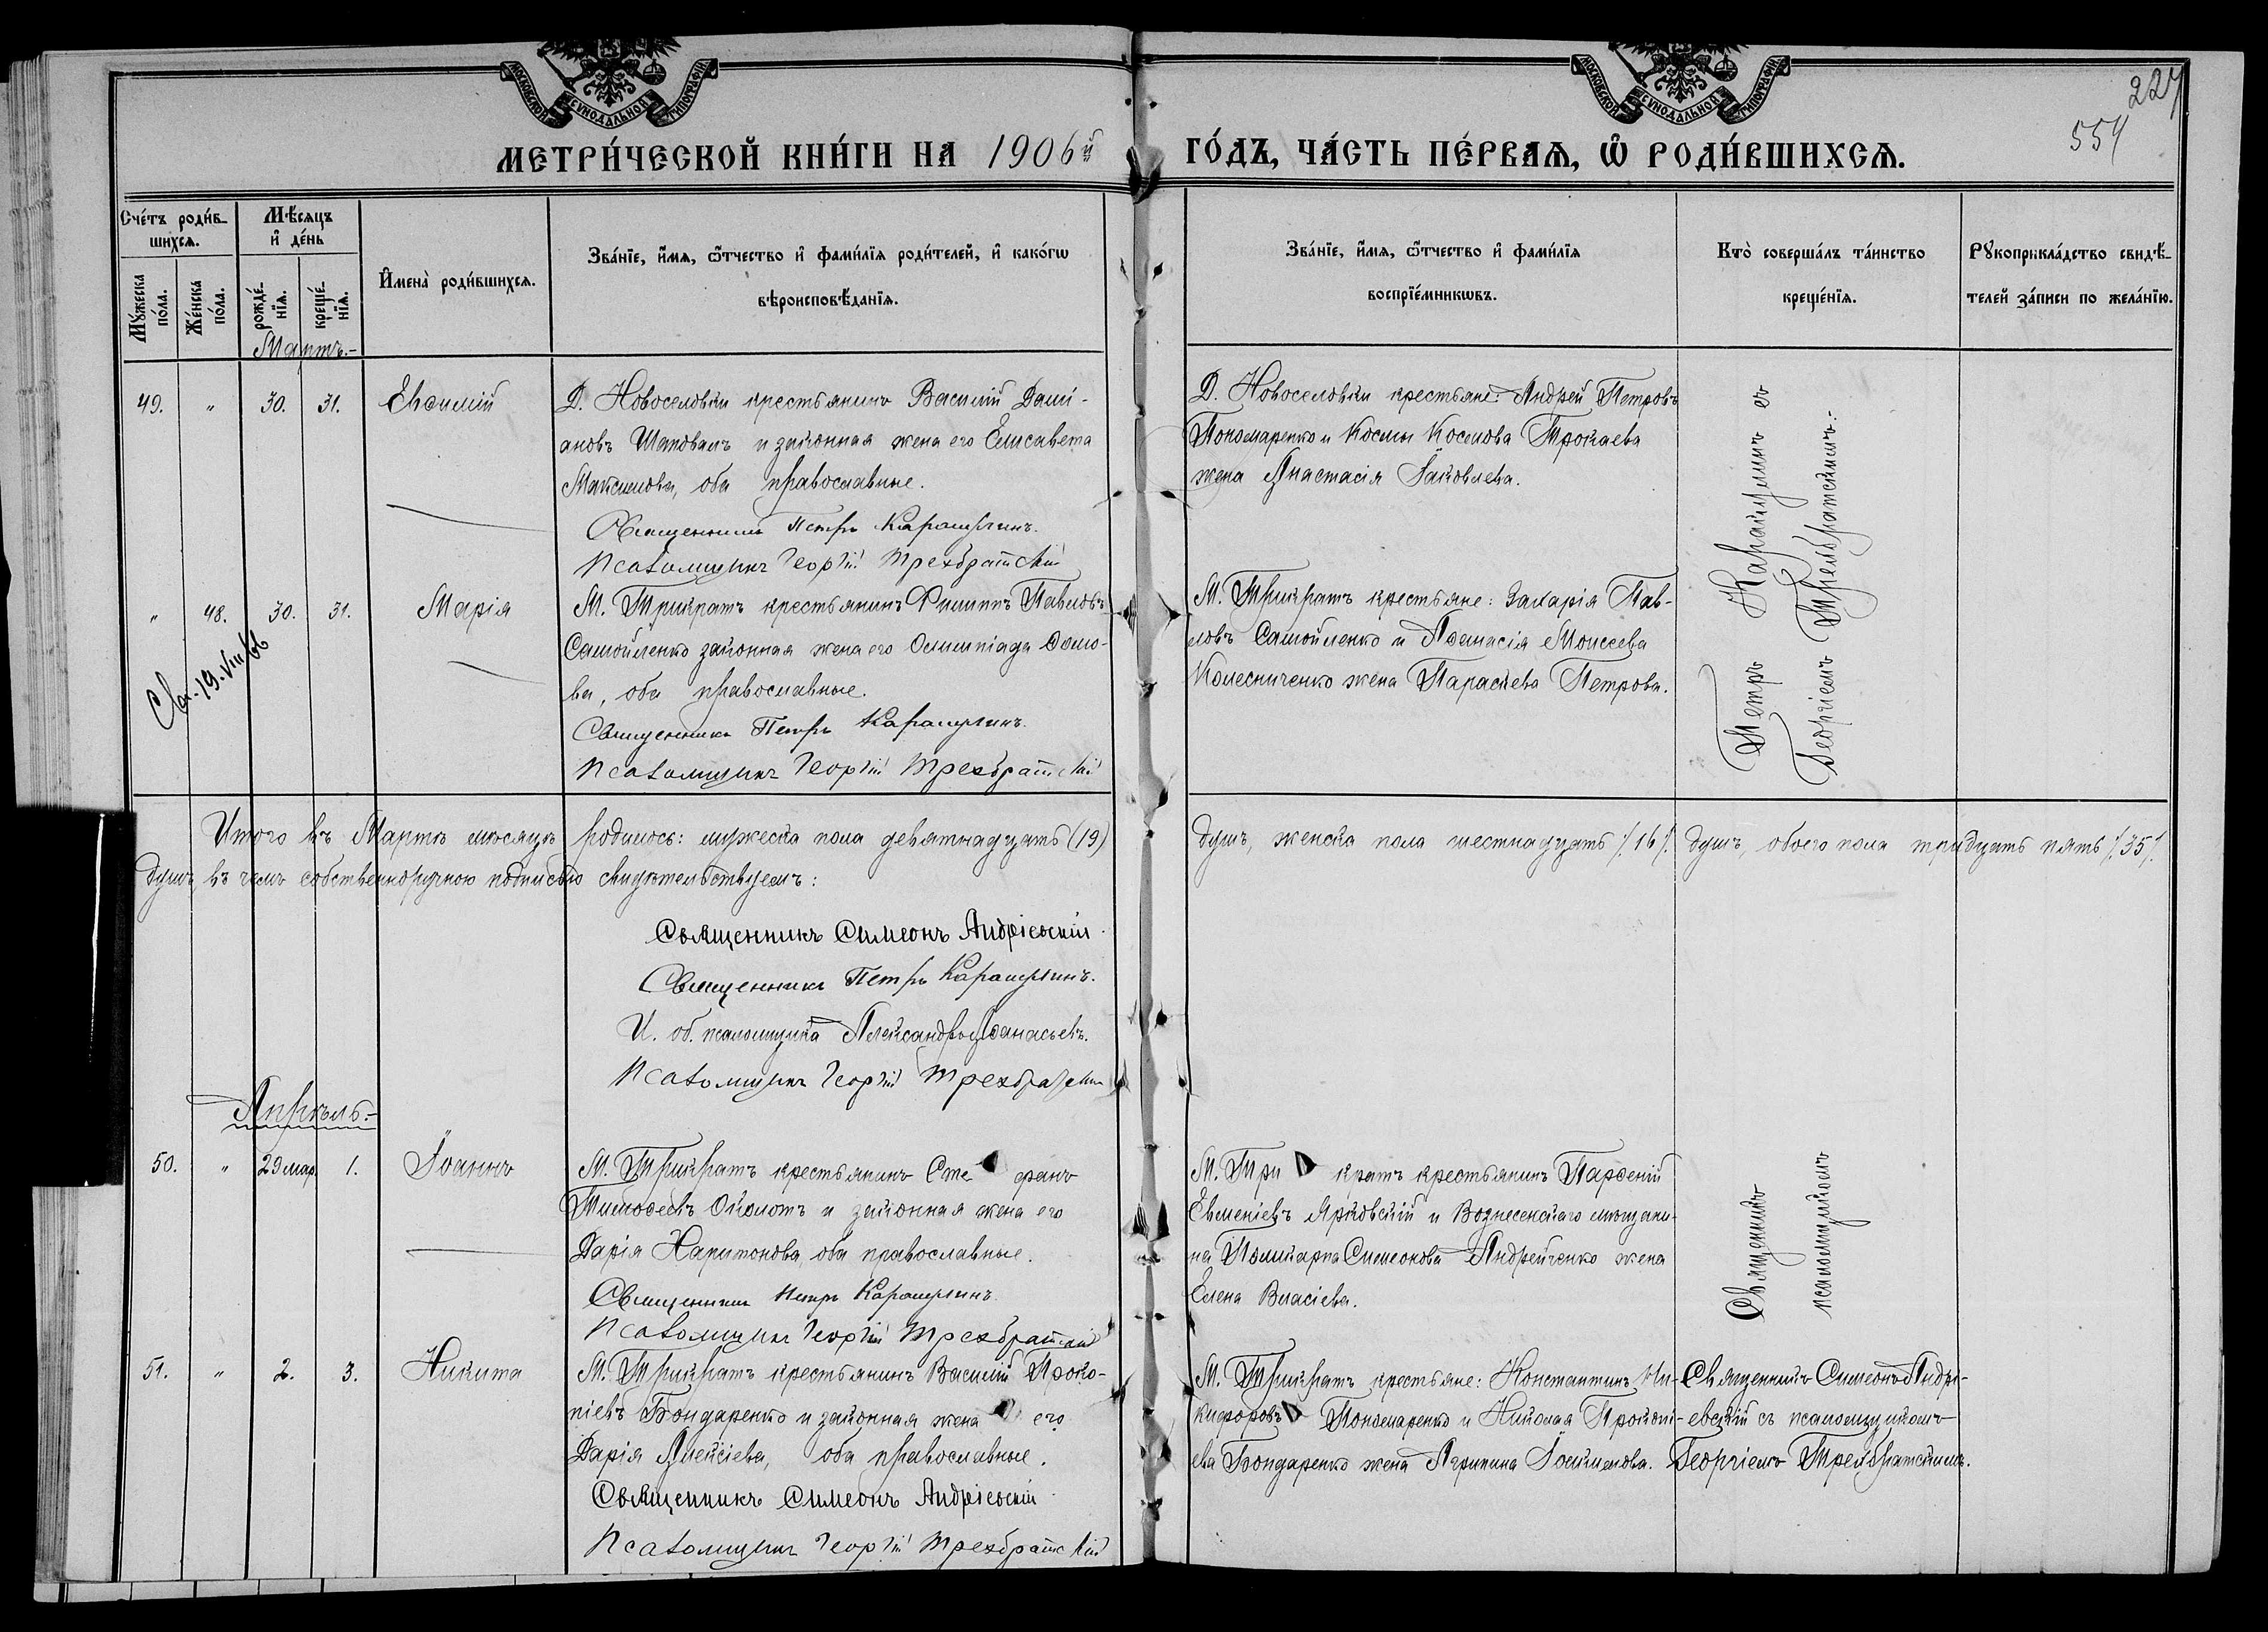 МОСКОВСКОЙ СѴНОДАЛЬНОЙ ТИПОГРАФІИ
МОСКОВСКОЙ СѴНОДАЛЬНОЙ ТИПОГРАФІИ
227
554
МЕТРИ́ЧЕСКОЙ КНИ́ГИ НА 1906й ГО́ДЪ, ЧА́СТЬ ПЕ́РВАѦ, Ѡ҆ РОДИ́ВШИХСѦ.
Сче́тъ роди́в-
шихсѧ.
Му́жеска
по́ла.
Же́нска
по́ла.
Мѣ́сяцъ
и҆ де́нь
рожде́-
нїѧ.
креще́-
нїѧ.
И҆мена̀ роди́вшихсѧ.
Зва́нїе, и҆́мѧ, ѻ҆́тчество и҆ фами́лїѧ роди́телей, и҆ како́гѡ
вѣроисповѣ́данїѧ.
Зва́нїе, и҆́мѧ, ѻ҆́тчество и҆ фами́лїѧ
воспрїе́мникѡвъ.
Кто̀ соверша́лъ та́инство
креще́нїѧ.
Рꙋкоприкла́дство свидѣ́-
телей за́писи по жела́нїю.
Мартъ.-
49. " 30. 31. Евѳимій
Д. Новоселовки крестьянинъ Василій Дамі-
ановъ Шаповалъ и законная жена его Елисавета
Максимова, оба православные.
Священникъ Петръ Карашулинъ.
Псаломщикъ Георгій Трехбратскій
Д. Новоселовки крестьяне: Андрей Петровъ
Пономаренко и Космы Космова Трокаева
жена Анастасія Іаковлева.
" 48. 30. 31. Марія
М. Трикратъ крестьянинъ Филиппъ Павловъ
Самойленко законная жена его Олимпіада Ѳомо-
ва, оба православные.
Священникъ Петръ Карашулинъ.
Псаломщикъ Георгій Трехбратскій
М. Трикратъ крестьяне: Захарія Пав-
ловъ Самойленко и Аѳанасія Моисеева
Колесниченко жена Параскева Петрова.
19.VIII/66
Петръ Карашулинъ съ
Георгіемъ Трехбратскимъ.-
Итого въ Мартѣ мѣсяцѣ родилось: мужеска пола девятнадцать (19) душъ, женска пола шестнадцать /.16/. душъ, обоего пола тридцать пять /.35/.
душъ, въ чемъ собственноручною подписью свидѣтельствуемъ:
Священникъ Симеонъ Андріевскій
Священникъ Петръ Карашулинъ.
И. об. псаломщика Александръ Аѳанасьевъ.
Псаломщикъ Георгій Трехбратскій
Апрѣль.-
50. " 29 мар. 1. Іоаннъ
М. Трикратъ крестьянинъ Сте фанъ
Тимоѳеевъ Околотъ и законная жена его
Дарія Харитонова, оба православные.
Священникъ Петръ Карашулинъ.
Псаломщикъ Георгій Трехбратскій
М. Три кратъ крестьянинъ Парѳеній
Евменіевъ Ярковскій и Вознесенскаго мѣщани-
на Поликарпа Симеонова Андрейченко жена
Елена Власіева.
Священникъ
псаломщикомъ
51. " 2. 3. Никита
М. Трикратъ крестьянинъ Василій Проко-
піевъ Бондаренко и законная жена его
Дарія Алексіева, оба православные.
Священникъ Симеонъ Андріевскій
Псаломщикъ Георгій Трехбратскій
М. Трикратъ крестьяне: Константинъ Ни-
кифоровъ Пономаренко и Николая Прокопі-
ева Бондаренко жена Агрипина Іоакимова.
Священникъ Симеонъ Андрі-
евскій съ псаломщикомъ
Георгіемъ Трехбратскимъ.